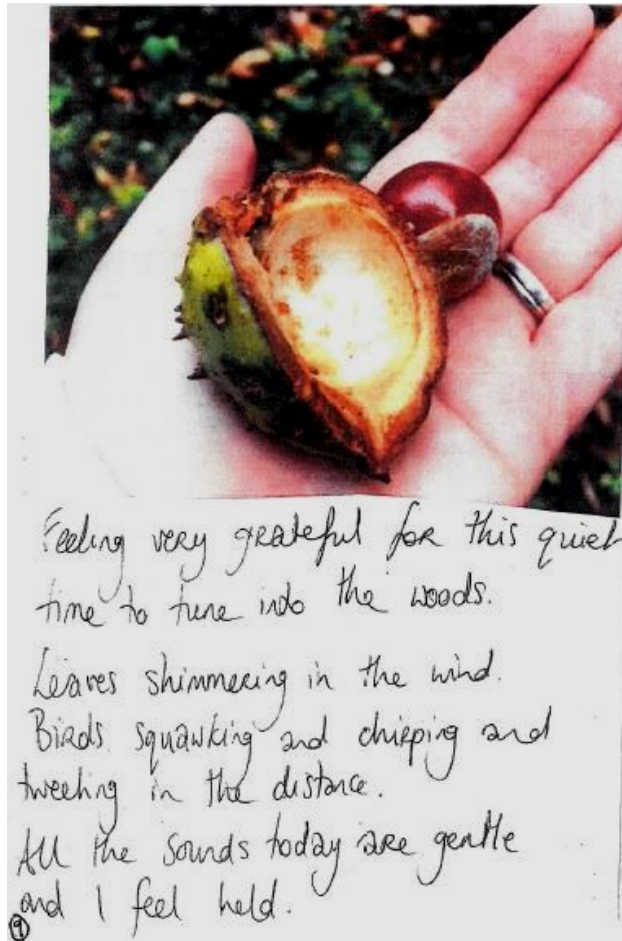 Feeling very grateful for this quiet
time to tune into the woods.
Leaves shimmering in the wind.
Birds squawking and chirping and
tweeting in the distance.
All the sounds today are gentle
and I feel held.
9